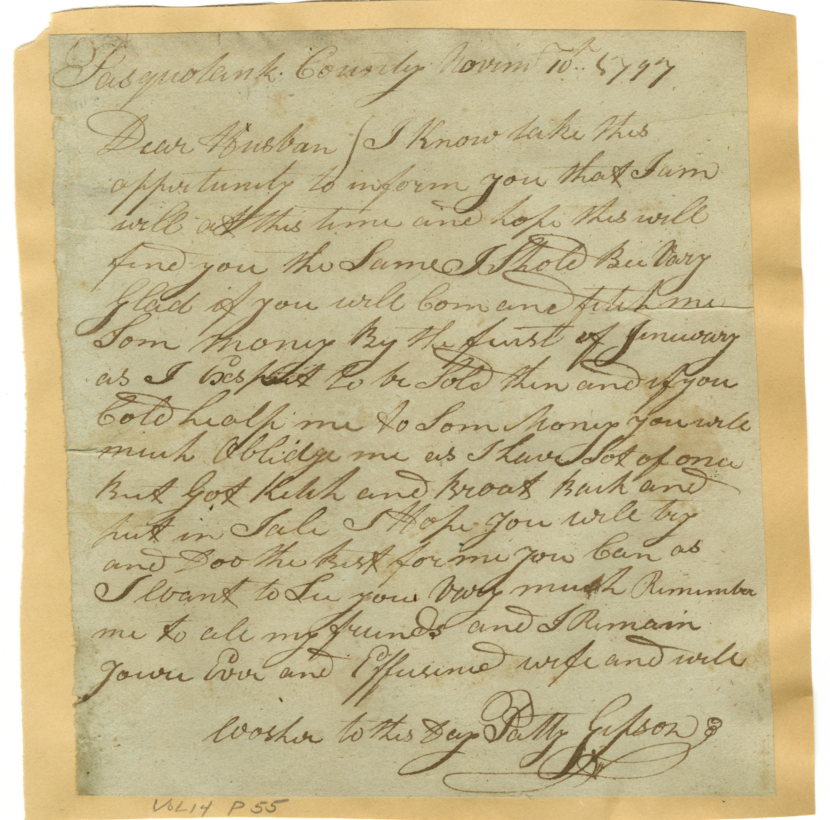 Pasquotank County Novem 10th 1797
Dear Husban I Know take this
oppertunity to inform you that I am
will at this time and hope this will
find you the Same I Shold Bee Vary
Glad if you will Com and fitch me
Som money By the furst of Jenuwary
as I Exspect to be Sold then and if you
Cold healp me to Som Money you will
much Oblidge me as I have Sot of onc
But Got Ketch and Broat Back and
put in Jale I Hope you will try
and Doo the Best for me you Can as
I want to See you Vary much Remember
me to all my friends and I Remain
youre Ever and Effusined wife and will
Wosher to this Day Patty Gipson
VOL 14 P 55